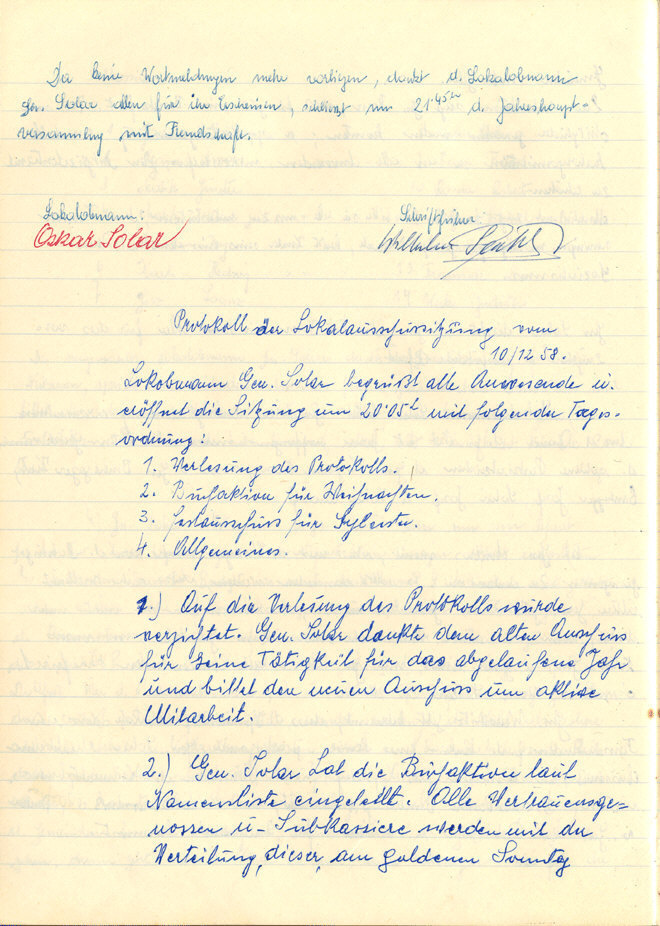 Da keine Wortmeldungen mehr vorliegen, dankt d. Lokalobmann
Gen. Solar allen für ihr Erscheinen, schliesst um 21.45 Uhr d. Jahreshaupt-
versammlung mit Freundschaft.
Lokalobmann:
Schriftführer:
Oskar Solar
Wilhelm
Protokoll der Lokalausschussitzung vom
10/12 58.
Lokobmann Gen. Solar begrüßt alle Anwesende u.
eröffnet die Sitzung um 20.05h mit folgender Tages-
ordnung:
1. Verlesung des Protokolls.
2. Buchaktion für Weihnachten.
3. Festausschuss für Sylvester.
4. Allgemeines.
1.) Auf die Verlesung des Protokolls wurde
verzichtet. Gen. Solar dankte dem alten Ausschuss
für seine Tätigkeit für das abgelaufene Jahr
und bittet den neuen Ausschuss um aktive
Mitarbeit.
2.) Gen. Solar hat die Buchaktion laut
Namensliste eingeteilt. Alle Vertrauensge-
nossen u- Subkassiere werden mit der
Verteilung, dieser, am goldenen Sonntag